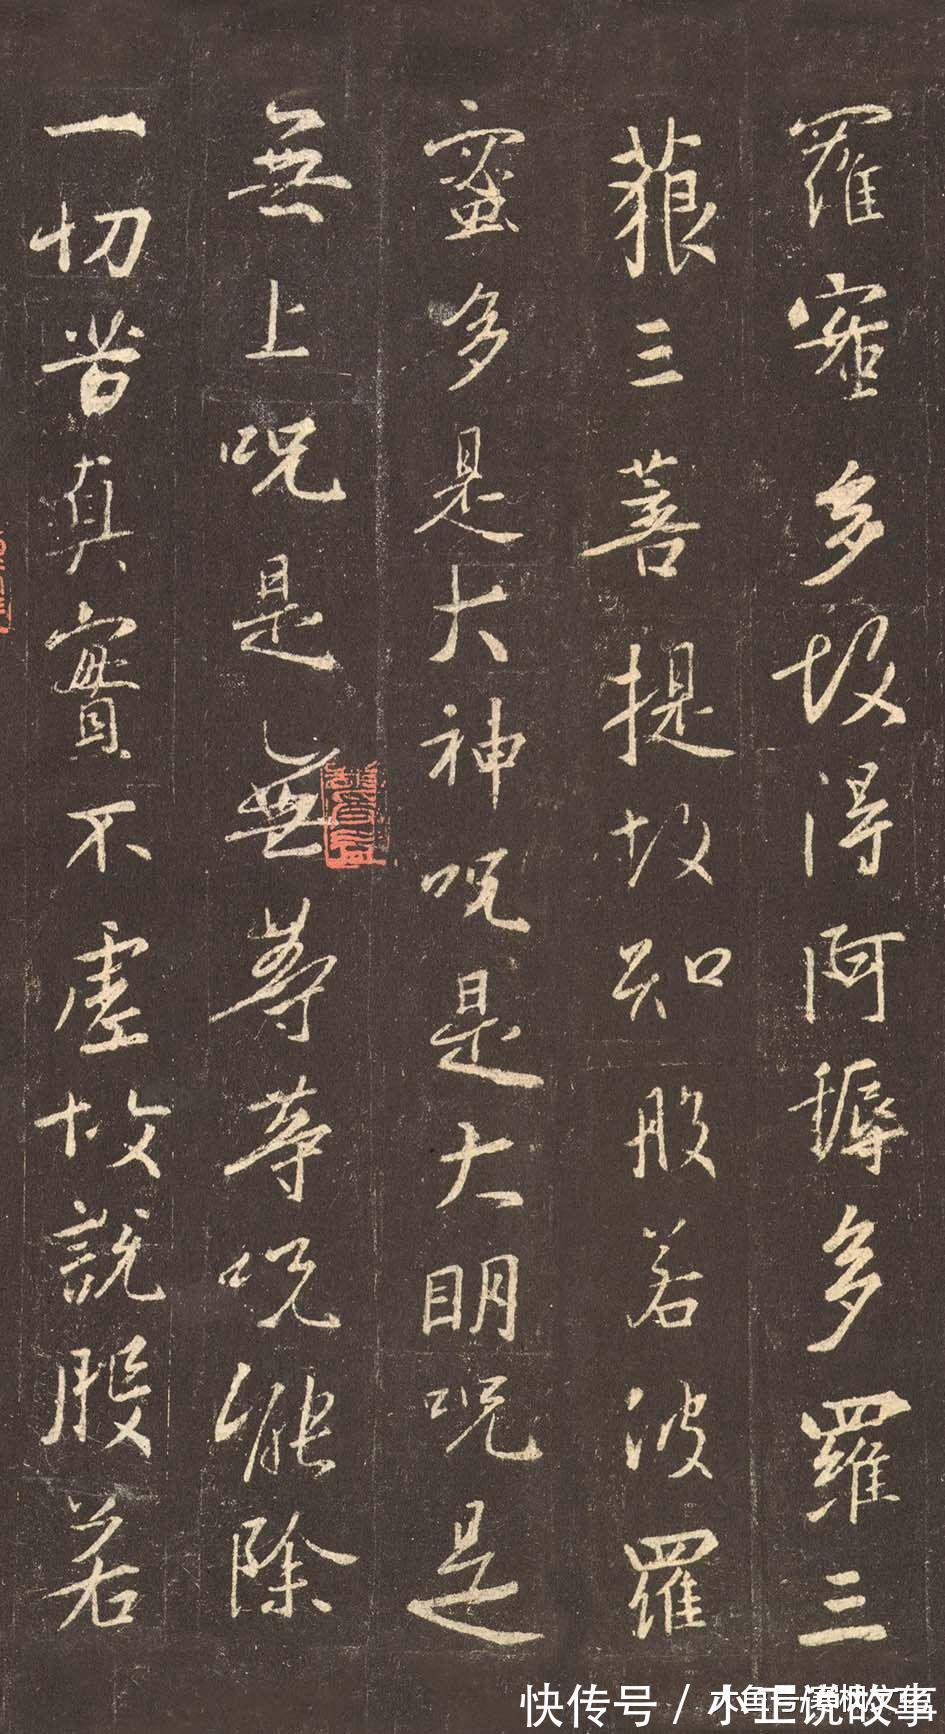 羅蜜多故得阿耨多羅三
藐三菩提故知般若波羅
蜜多是大神呪是大明呪是
無上呪是無等等呪能除
一切苦真實不虛故說般若
快传号 / 小正说故事